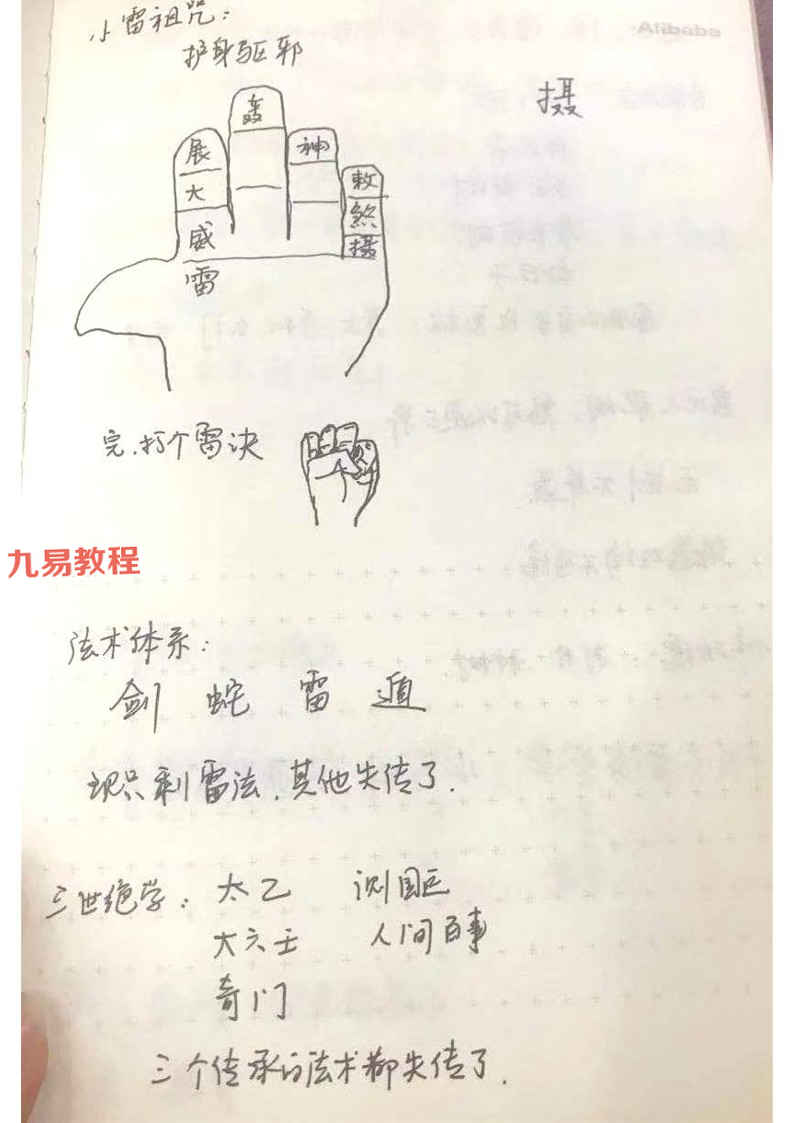 小雷祖咒：
护身驱邪
Alibaba
摄
轰
展 神
大 敕
煞
威 摄
雷
完，打个雷决
九易教程
法术体系：
剑 蛇 雷 遁
现只剩雷法，其他失传了.
三世绝学： 太乙 测国运
大六壬 人间百事
奇门
三个传承的法术都失传了.